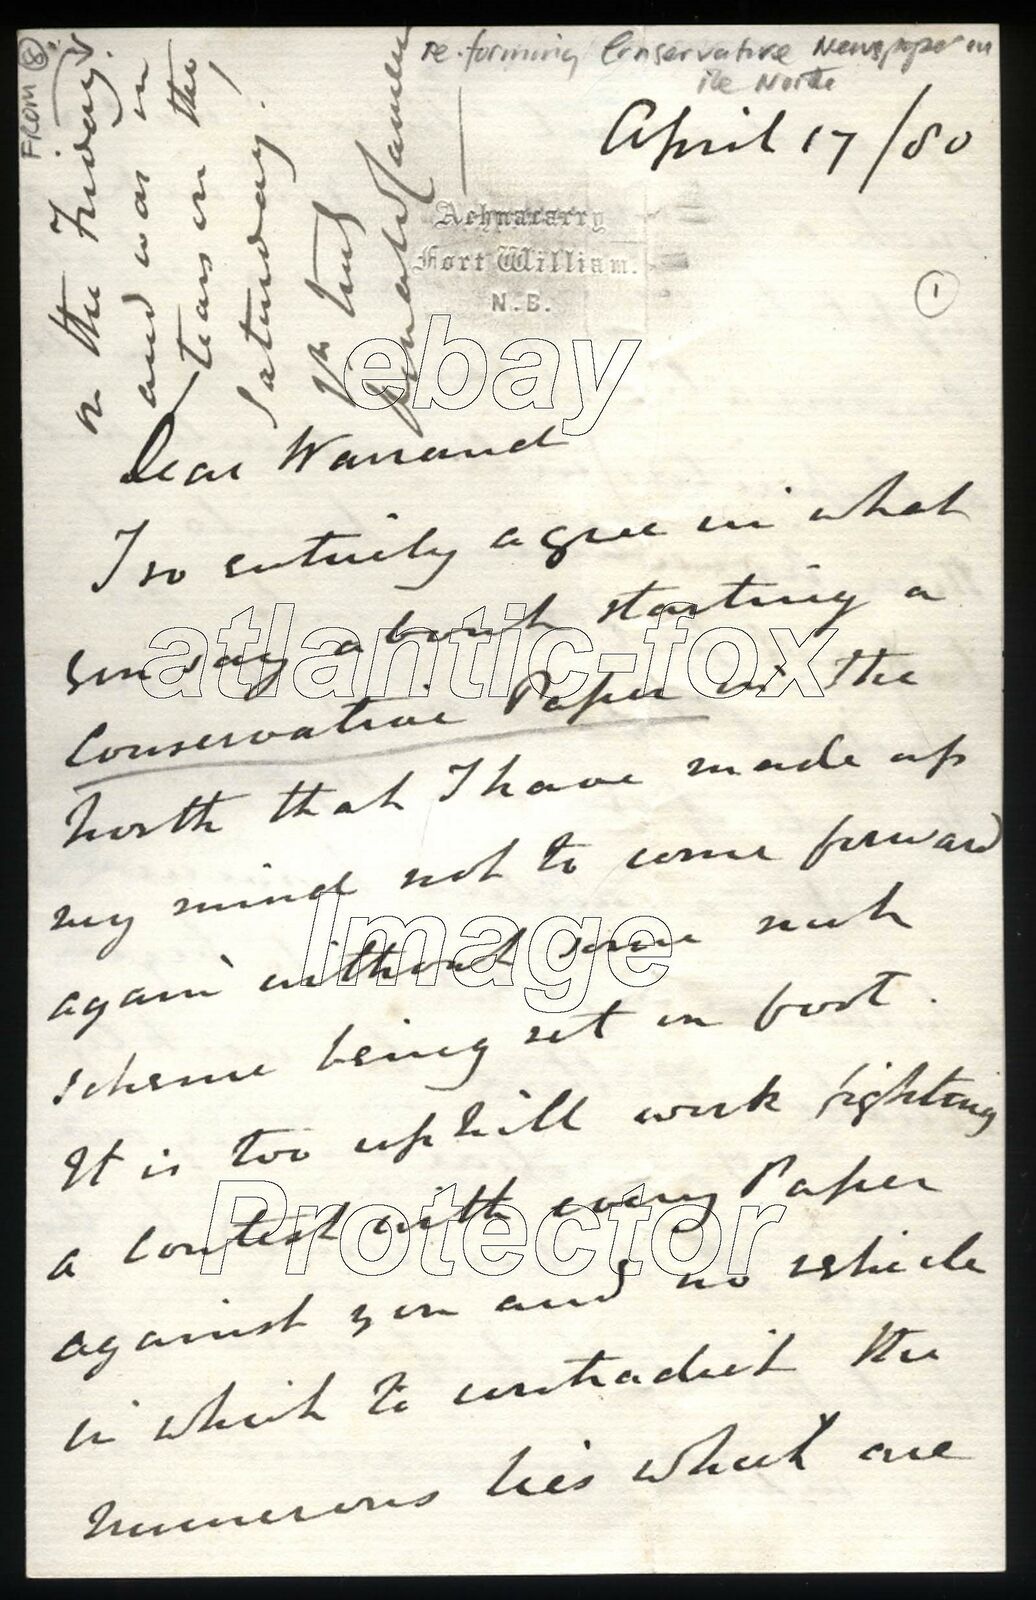 re. forming Conservative Newspaper in
the North
April 17/80
Achnacarry
Fort William.
N.B.
1
FROM 8
on the Friday.
and was in
tears on the
Saturday!
Yrs truly
Donald Cameron
Dear Warrand
I so entirely agree in what
you say about starting a
Conservative Paper in the
North that I have made up
my mind not to come forward
again without some such
scheme being set on foot.
It is too uphill work fighting
a contest with every Paper
against you and no vehicle
in which to contradict the
numerous lies which are
ebay
atlantic-fox
Image
Protector